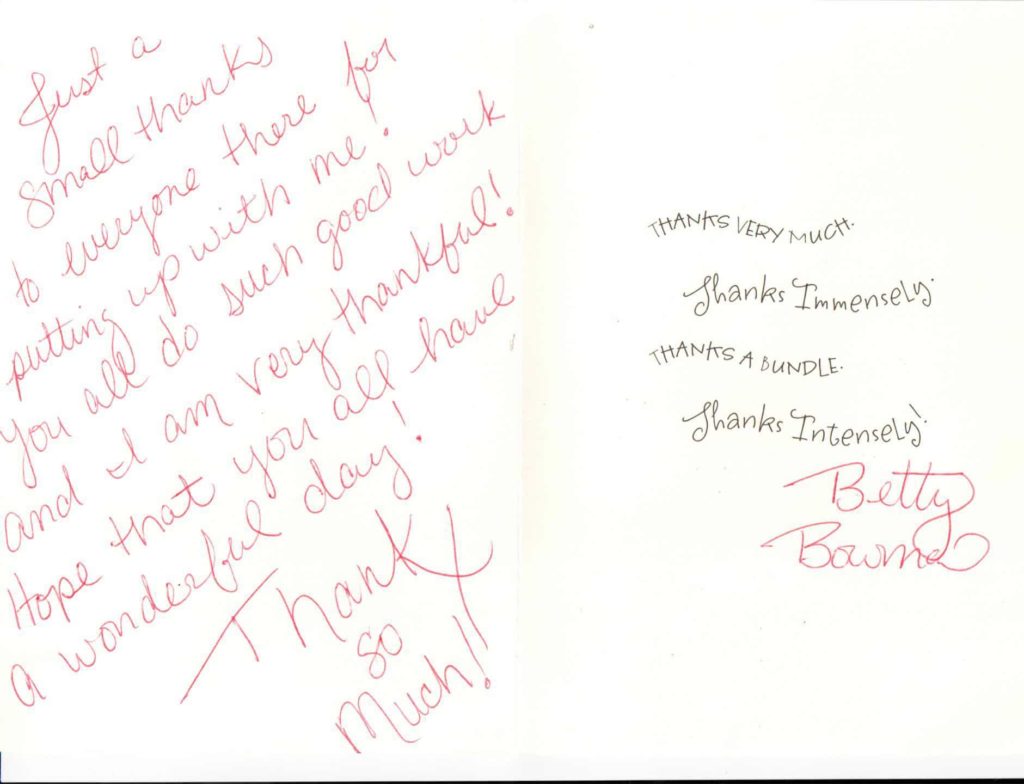 Just a
small thanks
to everyone there for
putting up with me!
you all do such good work
and I am very thankful!
Hope that you all have
a wonderful day!
Thank
so
Much!!
THANKS VERY MUCH.
Thanks Immensely.
THANKS A BUNDLE.
Thanks Intensely!
Betty